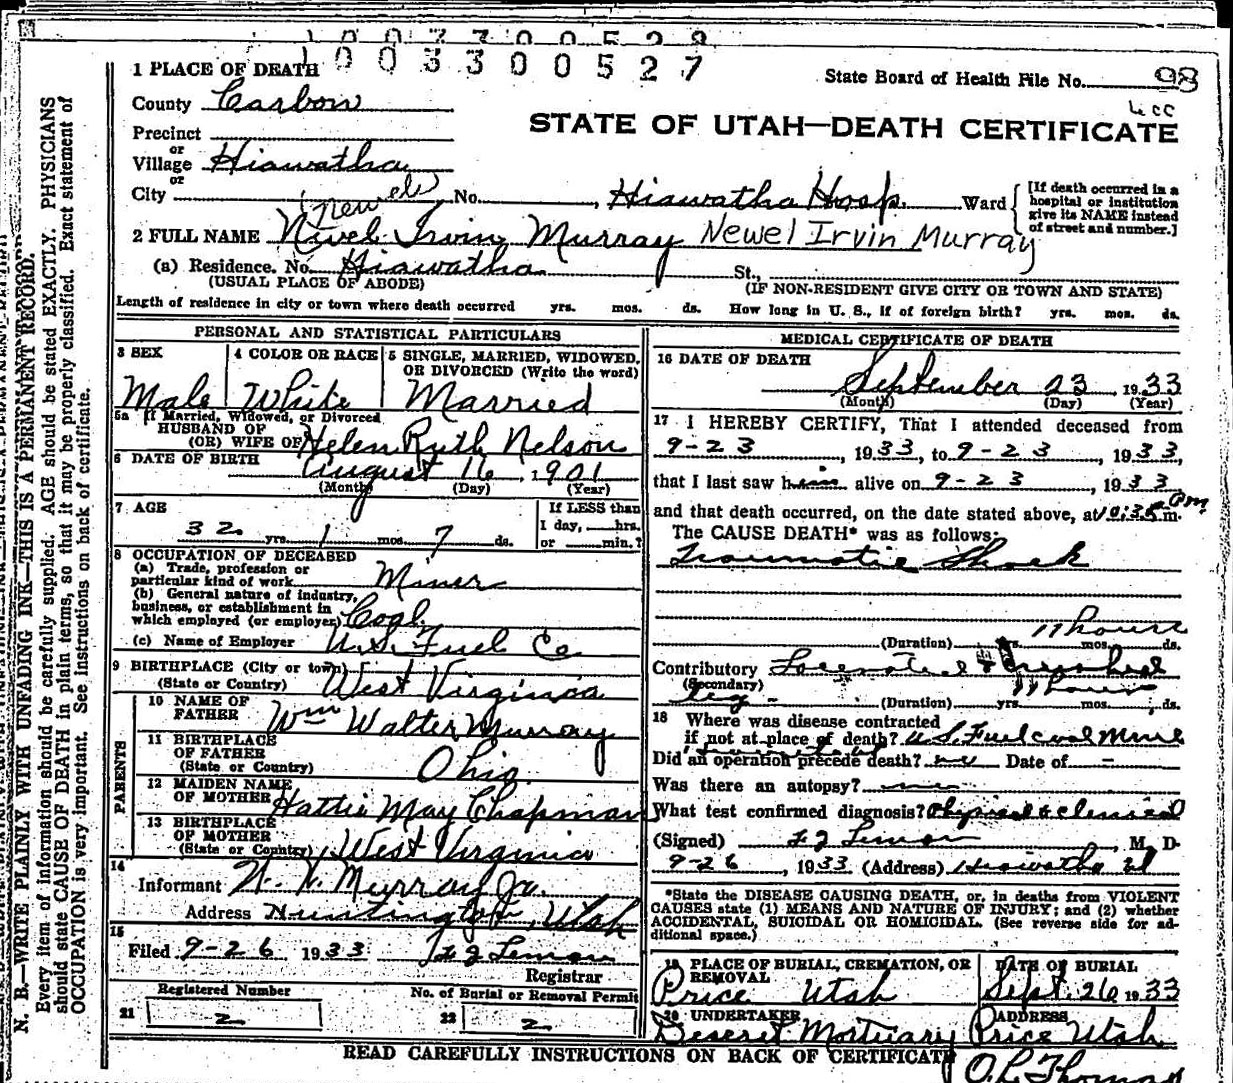 1 0 0 3 3 0 0 5 2 7
1 PLACE OF DEATH
State Board of Health File No. 98
County Carbon
STATE OF UTAH—DEATH CERTIFICATE
Precinct
or
Village Hiawatha
or
City (Newel) No. , Hiawatha Hosp. Ward
[If death occurred in a hospital or institution give its NAME instead of street and number.]
2 FULL NAME Nivel Irvin Murray Newel Irvin Murray
(a) Residence. No. Hiawatha St.,
(USUAL PLACE OF ABODE) (IF NON-RESIDENT GIVE CITY OR TOWN AND STATE)
Length of residence in city or town where death occurred yrs. mos. ds. How long in U. S., if of foreign birth? yrs. mos. ds.
PERSONAL AND STATISTICAL PARTICULARS
3 SEX 4 COLOR OR RACE 5 SINGLE, MARRIED, WIDOWED, OR DIVORCED (Write the word)
Male White Married
5a If Married, Widowed, or Divorced
HUSBAND OF
(OR) WIFE OF Helen Ruth Nelson
6 DATE OF BIRTH August 16, 1901
(Month) (Day) (Year)
7 AGE
If LESS than
1 day, hrs.
or min.?
32 yrs. 1 mos. 7 ds.
8 OCCUPATION OF DECEASED
(a) Trade, profession or
particular kind of work Miner
(b) General nature of industry,
business, or establishment in
which employed (or employer) Coal
(c) Name of Employer U.S. Fuel Co
9 BIRTHPLACE (City or town)
(State or Country) West Virginia
PARENTS
10 NAME OF
FATHER Wm Walter Murray
11 BIRTHPLACE
OF FATHER
(State or Country) Ohio.
12 MAIDEN NAME
OF MOTHER Hattie May Chapman
13 BIRTHPLACE
OF MOTHER
(State or Country) West Virginia
14
Informant W. W. Murray Jr.
Address Huntington, Utah
15
Filed 9-26 1933
Registrar
Registered Number No. of Burial or Removal Permit
21 2 22 2
MEDICAL CERTIFICATE OF DEATH
16 DATE OF DEATH
September 23, 1933
(Month) (Day) (Year)
17 I HEREBY CERTIFY, That I attended deceased from
9-23, 1933, to 9-23, 1933,
that I last saw him alive on 9-23, 1933
and that death occurred, on the date stated above, at 10:35 Pm m.
The CAUSE DEATH* was as follows:
Traumatic Shock
11 hours
(Duration) yrs. mos. ds.
Contributory Lacerated & Crushed
(Secondary) leg - 11 hours
(Duration) yrs. mos. ds.
18 Where was disease contracted
if not at place of death? U S Fuel coal Mine
Did an operation precede death? Date of -
Was there an autopsy? no
What test confirmed diagnosis? Physical & clinical
(Signed) M. D.
9-26, 1933 (Address) Hiawatha
*State the DISEASE CAUSING DEATH, or, in deaths from VIOLENT
CAUSES state (1) MEANS AND NATURE OF INJURY; and (2) whether
ACCIDENTAL, SUICIDAL OR HOMICIDAL. (See reverse side for ad-
ditional space.)
19 PLACE OF BURIAL, CREMATION, OR REMOVAL DATE OF BURIAL
Price Utah Sept. 26 1933
20 UNDERTAKER ADDRESS
Deseret Mortuary Price Utah
READ CAREFULLY INSTRUCTIONS ON BACK OF CERTIFICATE
N. B.—WRITE PLAINLY WITH UNFADING INK—THIS IS A PERMANENT RECORD.
Every item of information should be carefully supplied. AGE should be stated EXACTLY. PHYSICIANS
should state CAUSE OF DEATH in plain terms, so that it may be properly classified. Exact statement of
OCCUPATION is very important. See instructions on back of certificate.